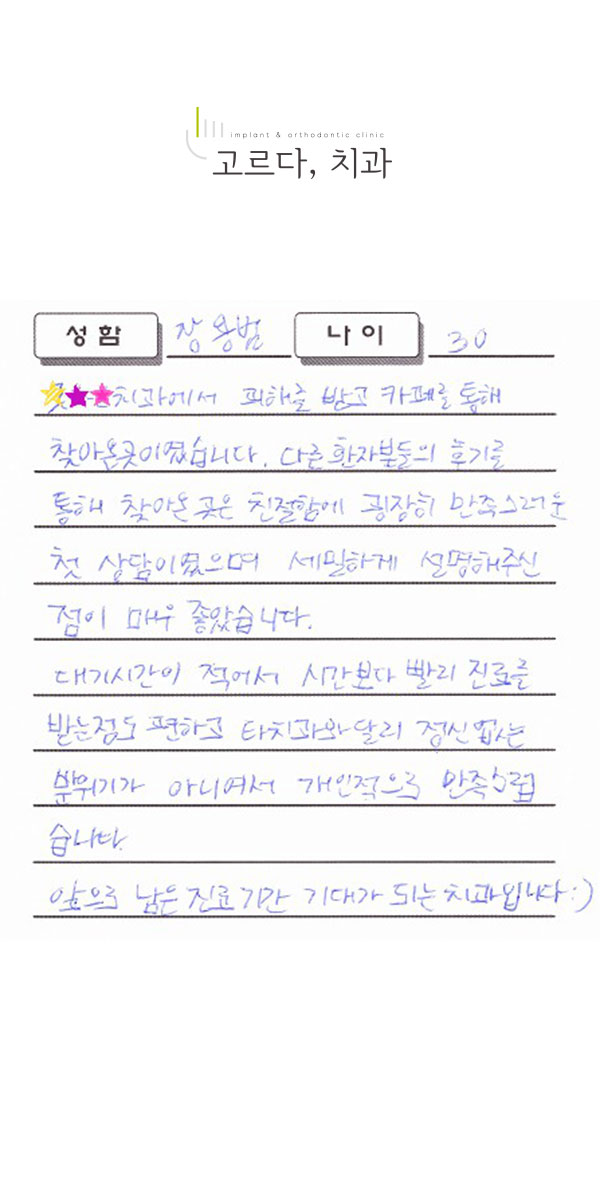 implant & orthodontic clinic
고르다, 치과
성함 장용범 나이 30
치과에서 피해를 받고 카페를 통해
찾아온곳이였습니다. 다른 환자분들의 후기를
통해 찾아온 곳은 친절함에 굉장히 만족스러운
첫 상담이였으며 세밀하게 설명해주신
점이 매우 좋았습니다.
대기시간이 적어서 시간보다 빨리 진료를
받는점도 편하고 타치과와 달리 정신없는
분위기가 아니여서 개인적으로 만족스럽
습니다.
앞으로 남은 진료기간 기대가 되는 치과입니다 :)